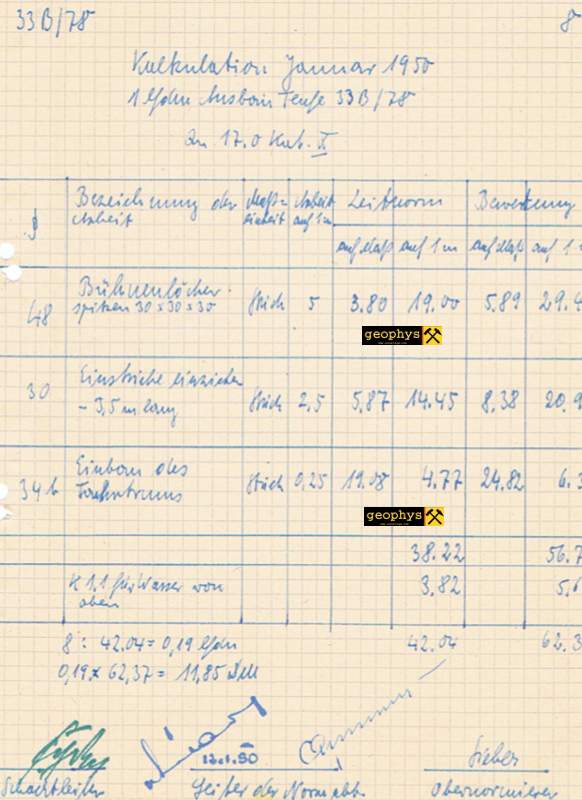 33B/78 8
Kalkulation Januar 1950
1 lfdm Ausbau Teufe 33B/78
An 17.0 Kat. II
§ Bezeichnung der Arbeit Maß-einheit Arbeit auf 1m Leitnorm Bewertung
auf Maß auf 1m auf Maß auf 1
48 Bühnenlöcher
spitzen 30x30x30 Stück 5 3.80 19.00 5.89 29.4
geophys
30 Einstriche einziehen
- 3,5 m lang Stück 2,5 5,87 14.45 8.38 20.9
34b Einbau des
Fahrtrums Stück 0,25 19.08 4.77 24.82 6.3
geophys
38.22 56.7
K 1.1 für Wasser von
oben 3.82 5.6
8 : 42.04 = 0,19 lfdm 42.04 62.3
0,19 x 62,37 = 11,85 DM
12.1.50
Schachtleiter Leiter der Normabt. Obernormierer